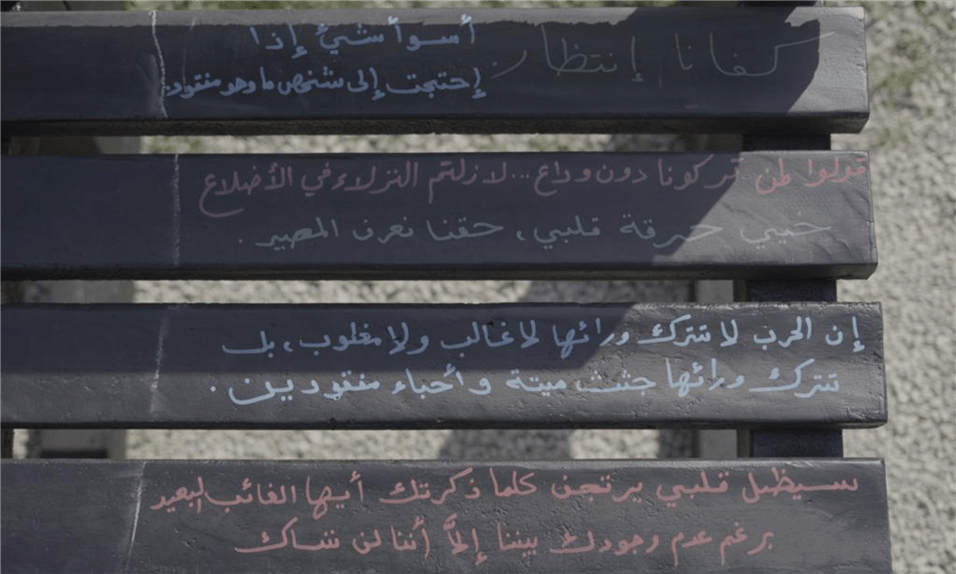 كفانا إنتظار.
أسوأ شيئ إذا
إحتجت إلى شخص ما وهو مفقود.
قولوا لمن تركونا دون وداع... لازلتم النزلاء في الأضلاع
خيي حرقة قلبي، حقنا نعرف المصير.
إن الحرب لا تترك ورائها لا غالب ولا مغلوب، بل
تترك ورائها جثث ميتة وأحباء مفقودين.
سيظل قلبي يرتجف كلما ذكرتك أيها الغائب البعيد
برغم عدم وجودك بيننا إلاَّ أننا لن ننساك